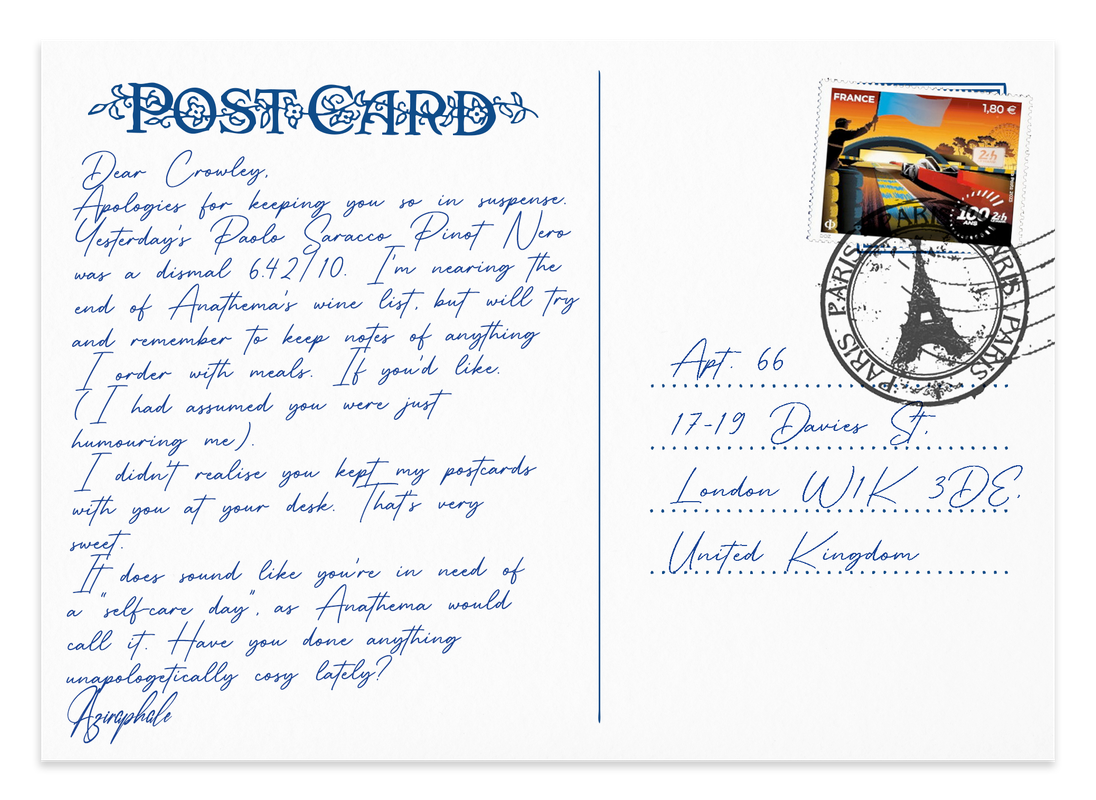 POST CARD
Dear Crowley,
Apologies for keeping you so in suspense.
Yesterday's Paolo Saracco Pinot Nero
was a dismal 6.42/10. I'm nearing the
end of Anathema's wine list, but will try
and remember to keep notes of anything
I order with meals. If you'd like.
(I had assumed you were just
humouring me).
I didn't realise you kept my postcards
with you at your desk. That's very
sweet.
It does sound like you're in need of
a "self-care day", as Anathema would
call it. Have you done anything
unapologetically cosy lately?
Aziraphale
FRANCE
1,80 €
24h
100 24h
ANS
PARIS
PARIS
PARIS
PARIS
PARIS
Apt. 66
17-19 Davies St.
London W1K 3DE.
United Kingdom